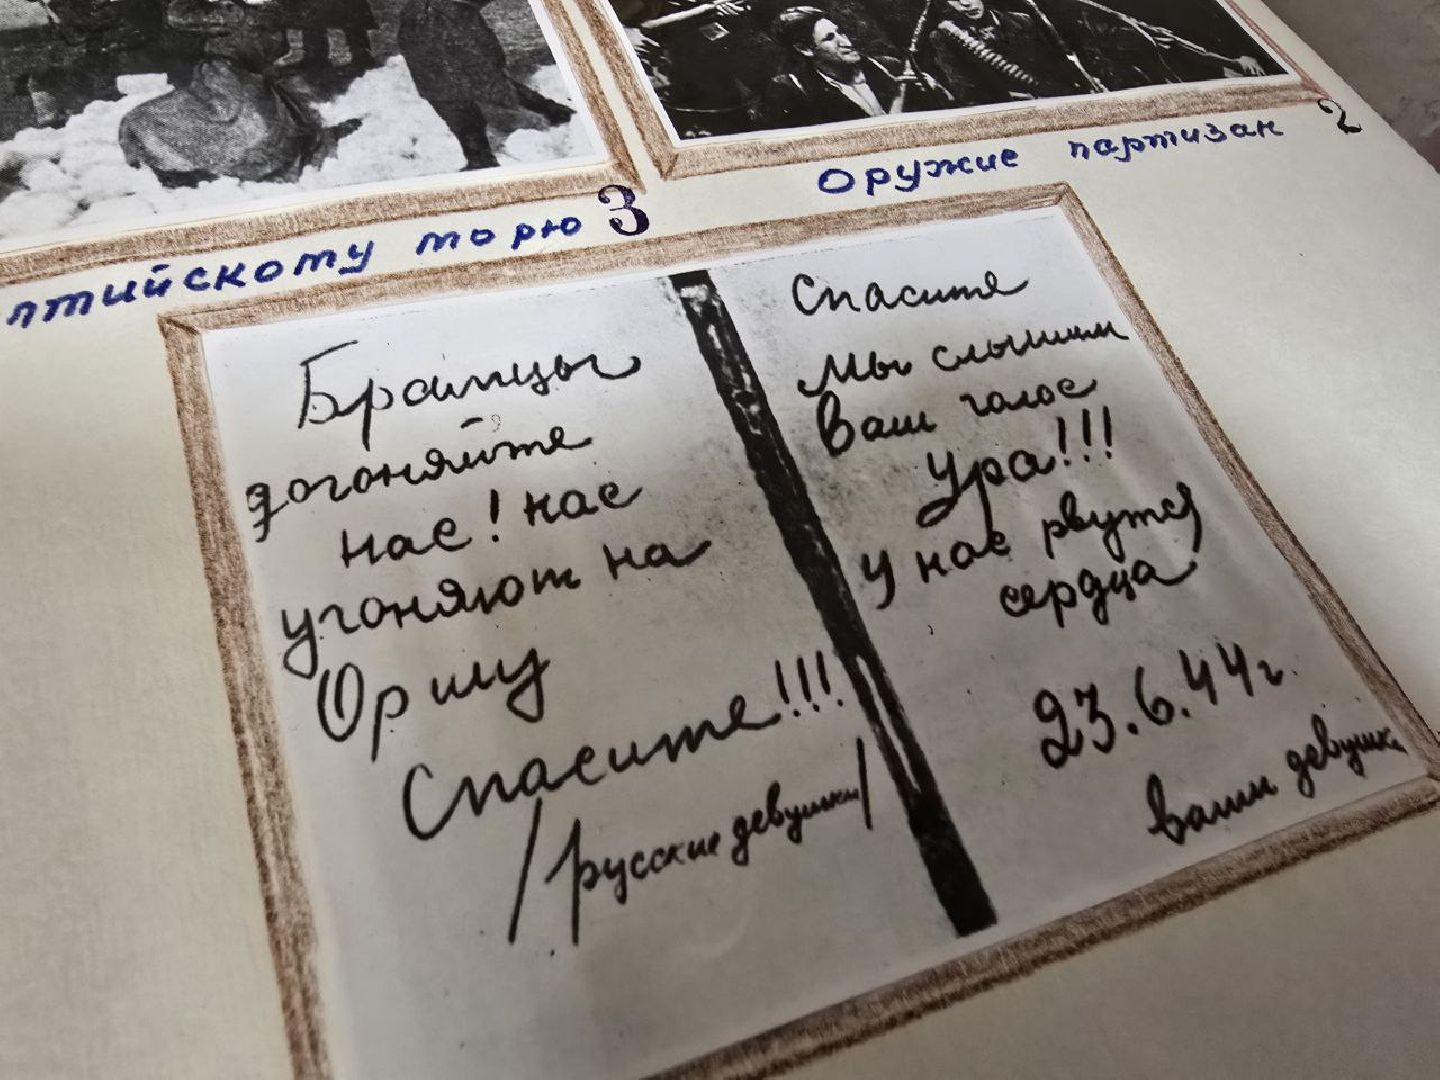 птийскому морю 3
Оружие партизан 2
Братцы
догоняйте
нас! нас
угоняют на
Оршу
Спасите!!!
/русские девушки/
Спасите
мы слышим
Ваш голос
Ура!!!
у нас рвутся
сердца
23.6.44г.
ваши девушки